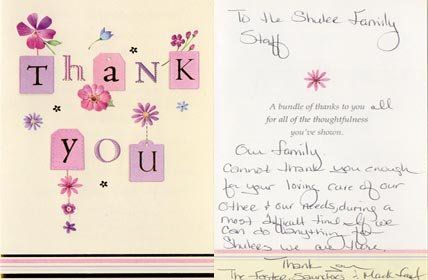 Thank
you
To the Shulee Family
Staff
A bundle of thanks to you all
for all of the thoughtfulness
you've shown.
Our family
Cannot thank you enough
for your loving care of our
Other & our needs, during a
most difficult time. If we
can do anything for
Shulees we are there.
Thank you
The Foster, Saunders &